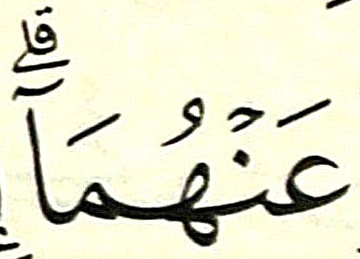 عَنۡهُمَآۗ